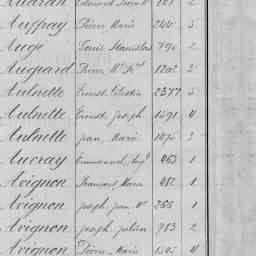 Audran Edouard 101 2
Auffray Pierre Marie 244 3
Augé Louis Stanislas 791 2
Auguard Pierre, Mie 1202 2
Aulnette Ernest Celestin 2377 5
Aulnette Ernest, Joseph 1591 4
Aulnette Jean, Marie 1074 3
Auvray Emmanuel, Aug. 463 1
Avignon Francois, Marie 482 1
Avignon Joseph, Jean Mie 255 1
Avignon Joseph, Julien 783 2
Avignon Pierre, Marie 4